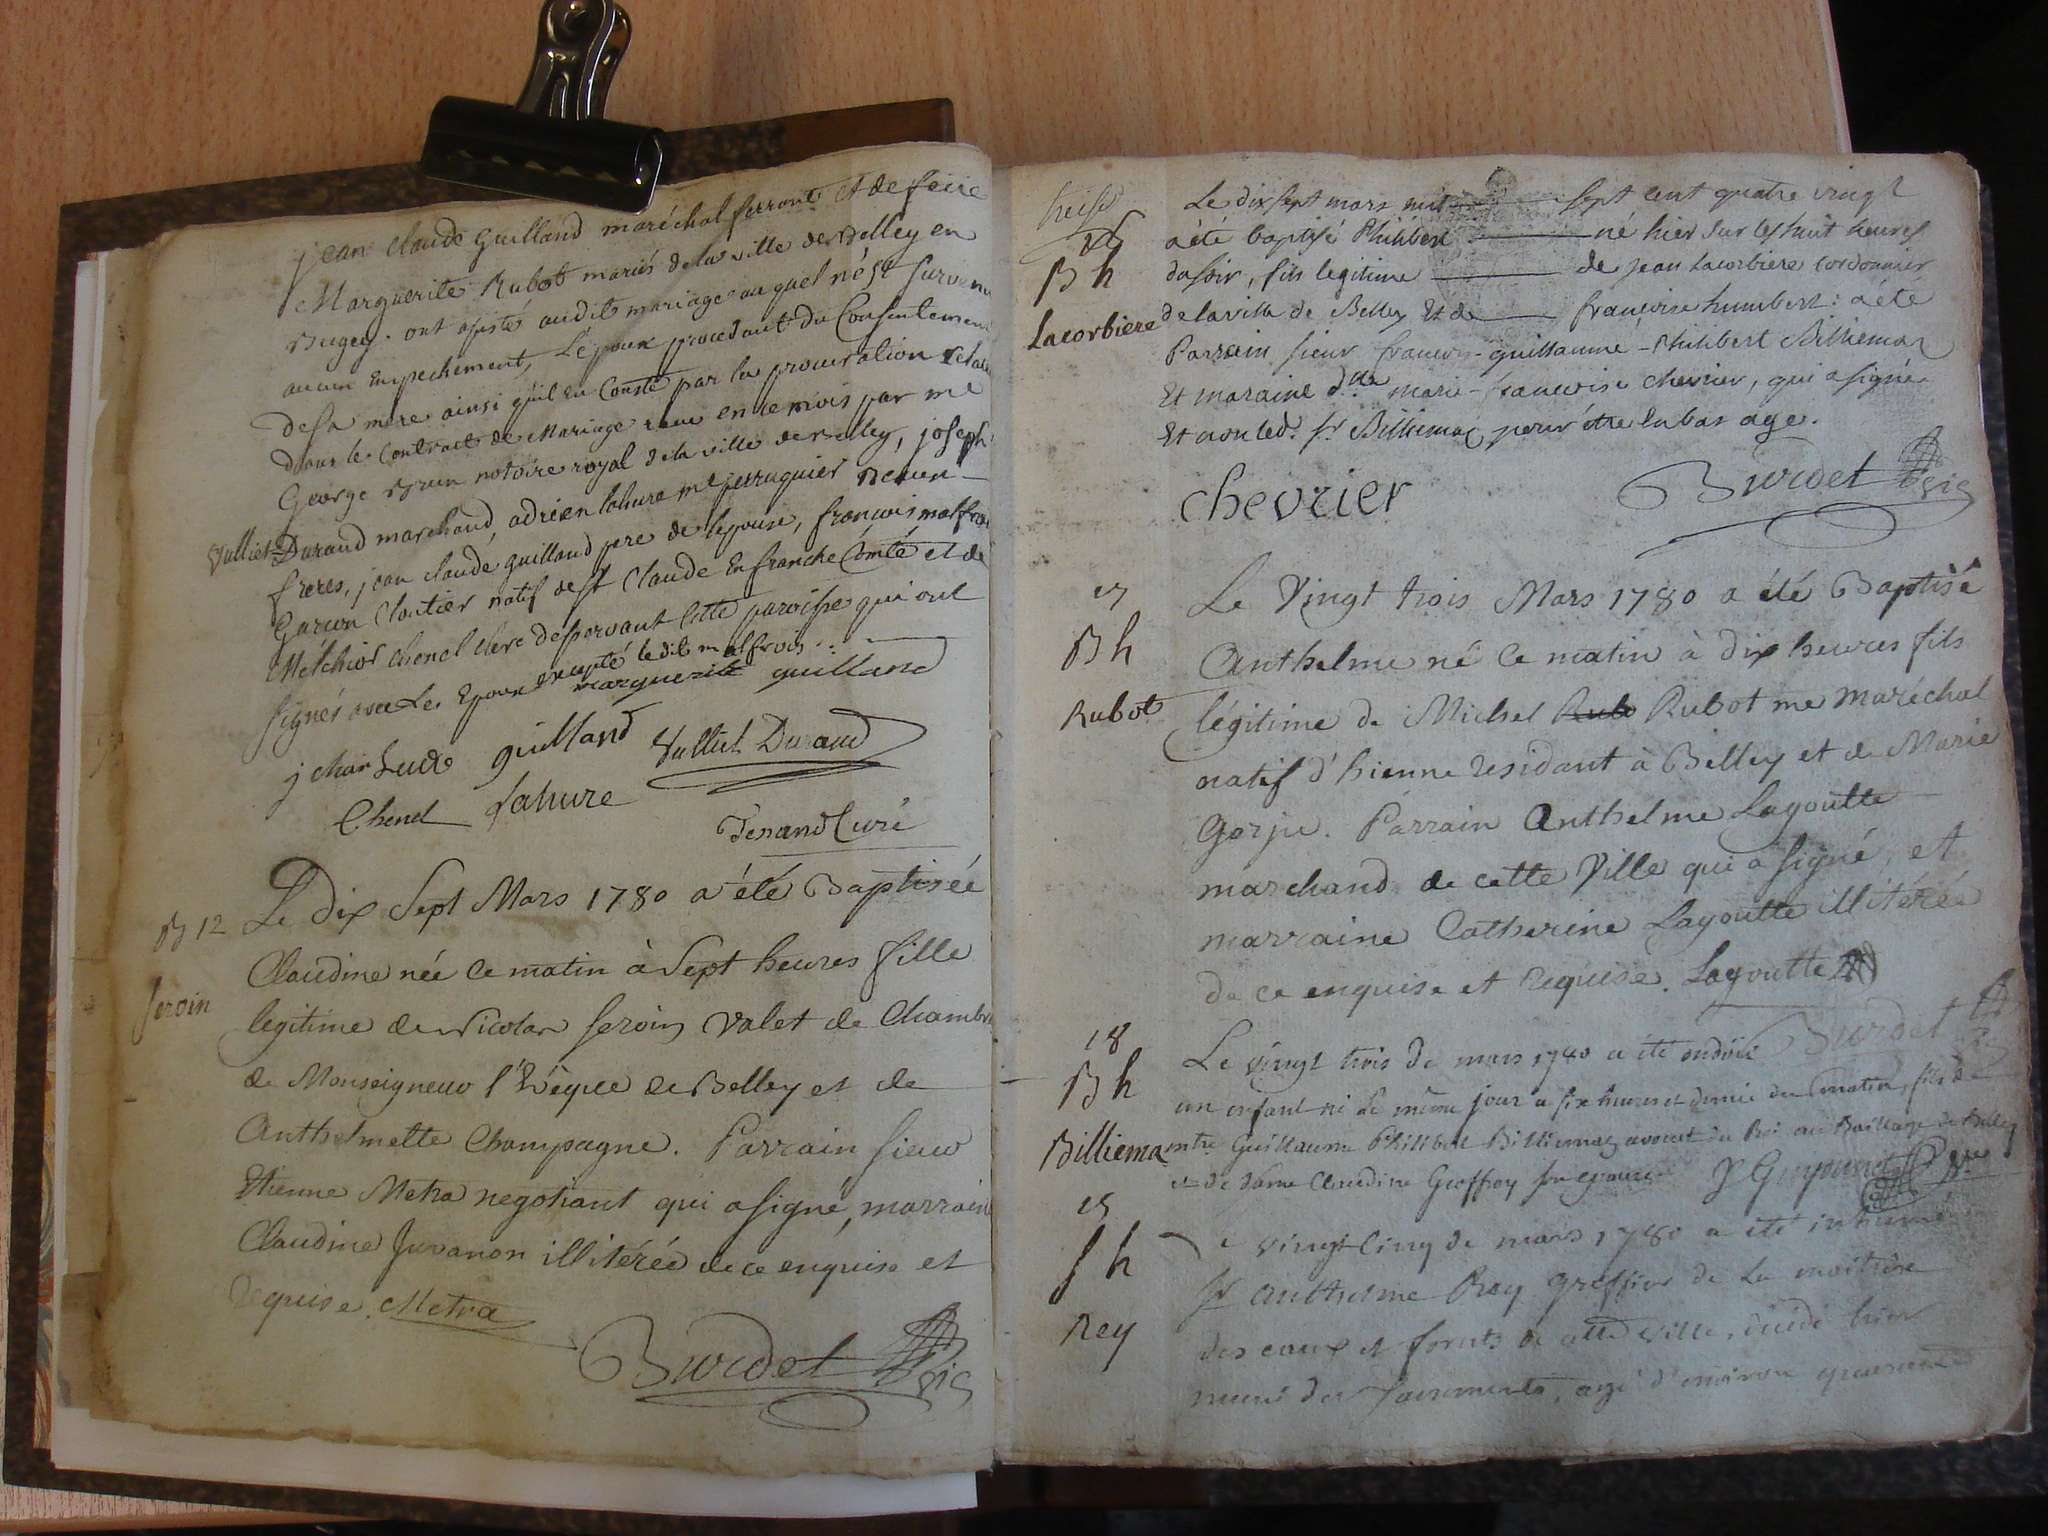 jean claude Guilland maréchal ferrant et de feüe
Marguerite Rubot mariés de la ville de Belley en
Bugey. ont asisté audit mariage auquel n'est survenu
aucun Empechement, L'époux procedant du Consentement
de sa mere ainsi qu'il en Conste par la procuration
dans le Contract de Mariage recu en ce mois par me
George Brun notoire royal de la ville de Belley, joseph
Vulliet Durand marchand, adrien lahure me perruquier
freres, jean claude guilland pere de l'epouse, francois malfroi
Garcon Cloutier natif de st Claude En franche Comté et de
Melchior Chenel clerc désservant Cette paroisse qui ont
signés avec Les Epoux excepté ledit malfrois
marguerite guilland
guilland Vulliet Durand
Chenel Lahure
Tenand Curé
B 12 Le Dix Sept Mars 1780 a été Baptisée
Claudine née ce matin à Sept heures fille
Seroin legitime de Nicolas Seroin Valet de Chambre
de Monseigneur l'Evêque de Belley et de
Anthelmette Champagne. Parrain Sieur
Etienne Metra negotiant qui a signé, marraine
Claudine Juvanon illitérée de ce enquise et
requise. Metra
Burdet Vic
Le dix sept mars mil sept cent quatre vingt
a été baptisé Philibert né hier sur les huit heures
B h du soir, fils legitime de jean Lacorbiere cordonnier
Lacorbiere de la ville de Belley Et de francoise humbert: a été
Parrain sieur francois-guillaume-Philibert Billiemaz
Et maraine dlle marie-francoise chevrier, qui a signé
Et non led. sr Billiemaz pour être en bas age.
chevrier Burdet Vic
17 Le Vingt trois Mars 1780 a été Baptisé
B h Anthelme né ce matin à dix heures fils
Rubot légitime de Michel Rub Rubot me maréchal
natif d'hienne residant à Belley et de Marie
Gorju. Parrain Anthelme Lagoutte
marchand de cette Ville qui a signé, et
marraine Catherine Lagoutte illitérée
de ce enquise et requise. Lagoutte
Burdet
18 Le vingt trois de mars 1780 a été ondoié
B h un enfant né le même jour a six heures et demie du matin, fils de
Billiema mtre Guillaume Philibert Billiemaz avocat du Roi au Bailliage de Belley
et de dame Claudine Geoffroy son epouse
15
S h Le vingt cinq de mars 1780 a été inhumé
sr Anthelme Rey greffier de la maitrise
Rey des eaux et forets de cette ville, décédé hier
muni des sacrements, agé d'environ quarante